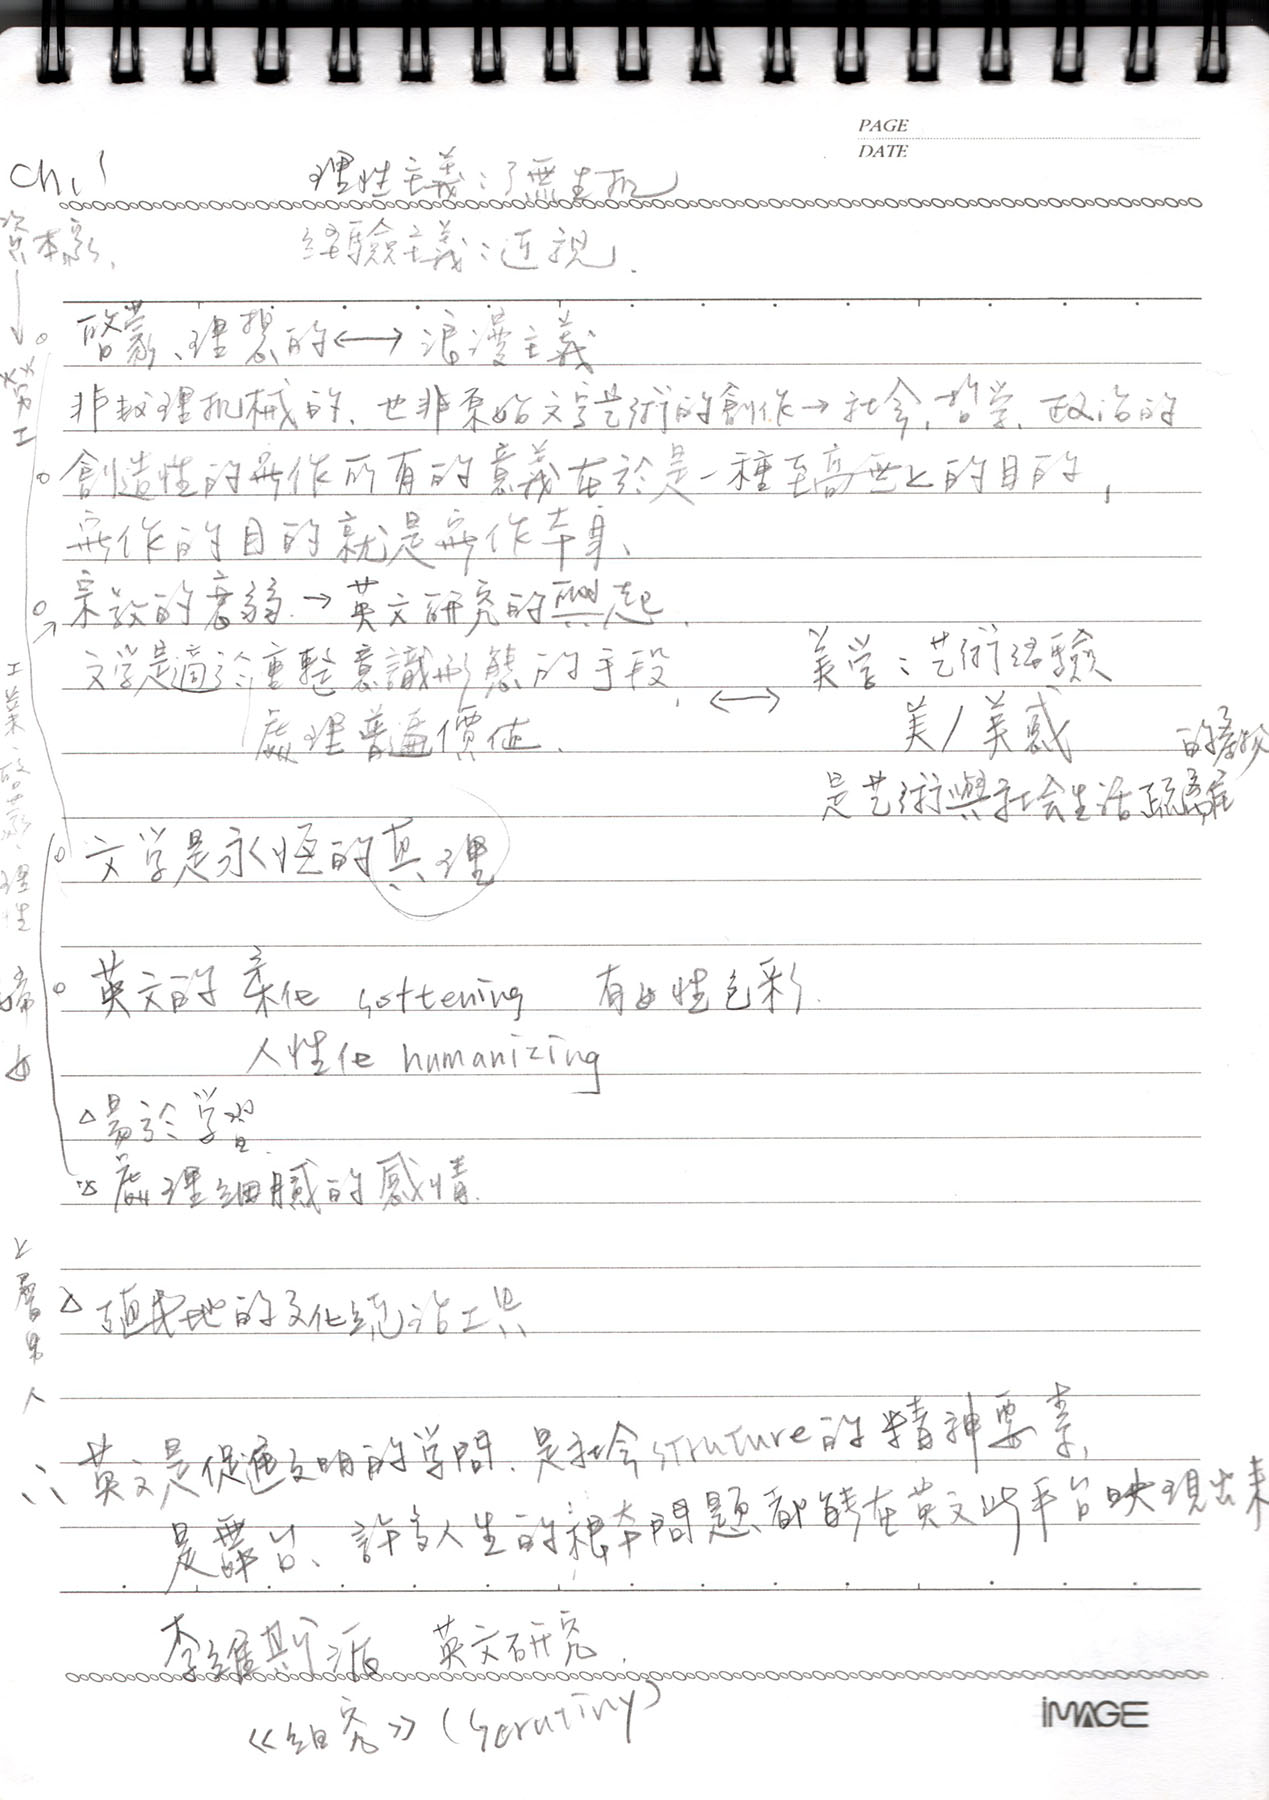 PAGE
DATE
ch.1
理性主義：了無生机
資本家
經驗主義：近視.
啓蒙、理想的 ↔ 浪漫主義
勞工
非推理机械的, 也非原始文字艺術的創作→社会, 哲学, 政治的
創造性的寫作所有的意義在於是一種至高無上的目的,
寫作的目的就是寫作本身、
宗教的衰弱.→英文研究的興起.
文学是適於重整意識形態的手段, ↔
處理普遍價值.
美学：艺術經驗
美/美感
是艺術與社会生活疏離的
工業 啟蒙、理性
文学是永恒的真理
婦女
英文的 柔化 softening 有女性色彩.
人性化 humanizing
△易於学習.
△處理細膩的感情.
上層男人
△殖民地的文化統治工具
∴ 英文是促進文明的学問. 是社会struture的精神要素,
是舞台、許多人生的根本問題都能在英文此平台映現出來
李維斯派 英文研究.
《細究》(Scrutiny)
iMAGE